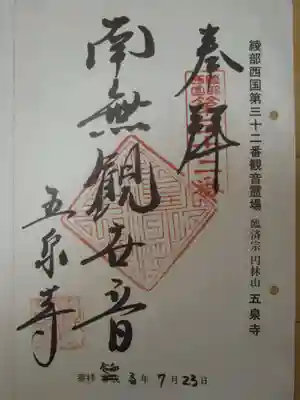 綾部西国第三十二番観音霊場 臨済宗 円林山 五泉寺
奉拝
南無観世音
五泉寺
年7月23日